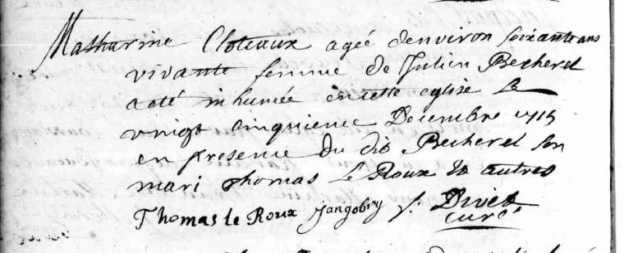 Mathurine Cloteaux agée denviron soixante ans
vivante femme de Julien Becherel
a été inhumée en cette eglise le
vingt cinquieme Decembre 1715
en presence du dit Becherel son
mari Thomas Le Roux & autres
Thomas le Roux Jangobry Divet
curé